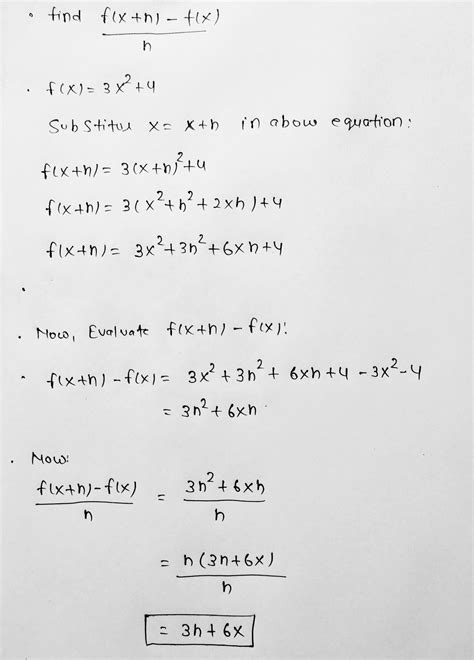 • find f(x+h) - f(x)
h
• f(x) = 3x²+4
Substitue x = x+h in above equation:
f(x+h) = 3(x+h)²+4
f(x+h) = 3(x²+h²+2xh)+4
f(x+h) = 3x²+3h²+6xh+4
•
• Now, Evaluate f(x+h) - f(x):
• f(x+h) - f(x) = 3x²+3h²+6xh+4-3x²-4
= 3h²+6xh
• Now:
f(x+h)-f(x) = 3h²+6xh
h h
= h(3h+6x)
h
= 3h+6x